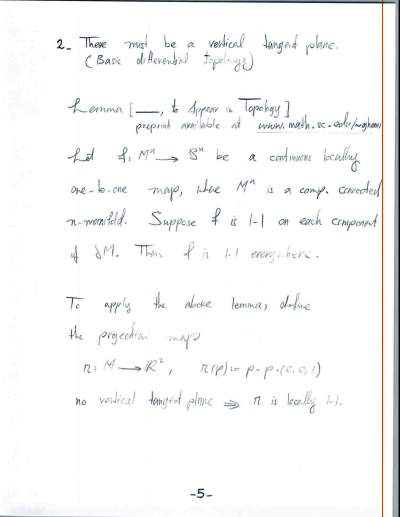 2- There must be a vertical tangent plane.
(Basic differential topology)
Lemma [___, to Appear in Topology]
preprint available at www.math.sc.edu/~ghomi
Let f: Mⁿ → Sⁿ be a continuous locally
one-to-one map, where Mⁿ is a comp. connected
n-manifold. Suppose f is 1-1 on each component
of ∂M. Then f is 1-1 everywhere.
To apply the above lemma, define
the projection map
π: M → R², π(p) := p - p·(0,0,1)
no vertical tangent plane ⇒ π is locally 1-1.
-5-